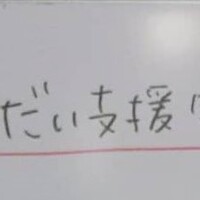 だい支援